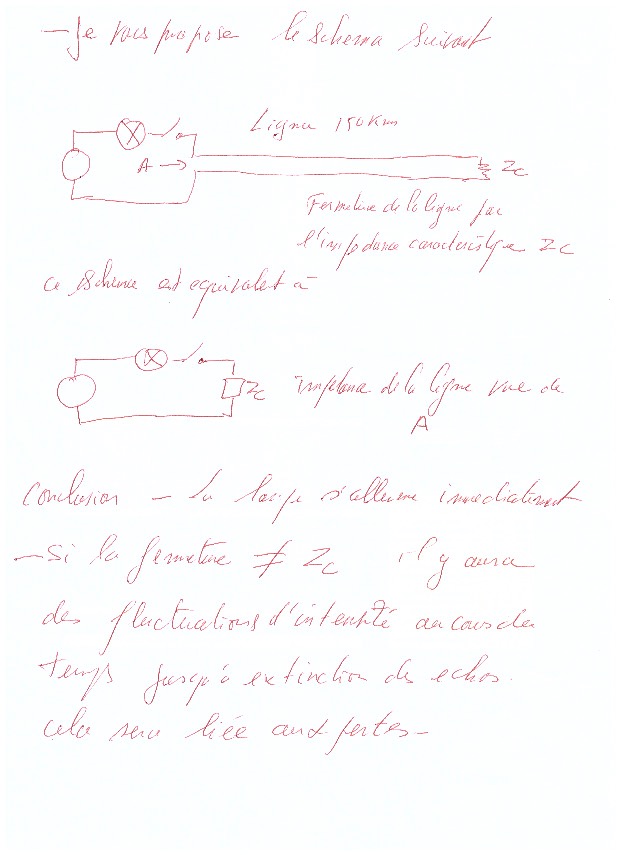 - Je vous propose le schema suivant
Ligne 150 Km
A →
Zc
Fermeture de la ligne par
l'impedance caracteristique Zc
ce schema est equivalent à
Zc impedance de la ligne vue de
A
Conclusion - La lampe s'allume immediatement
- Si la fermeture ≠ Zc il y aura
des fluctuations d'intensité au cours du
temps jusqu'à extinction des echos.
cela sera liée aux pertes -